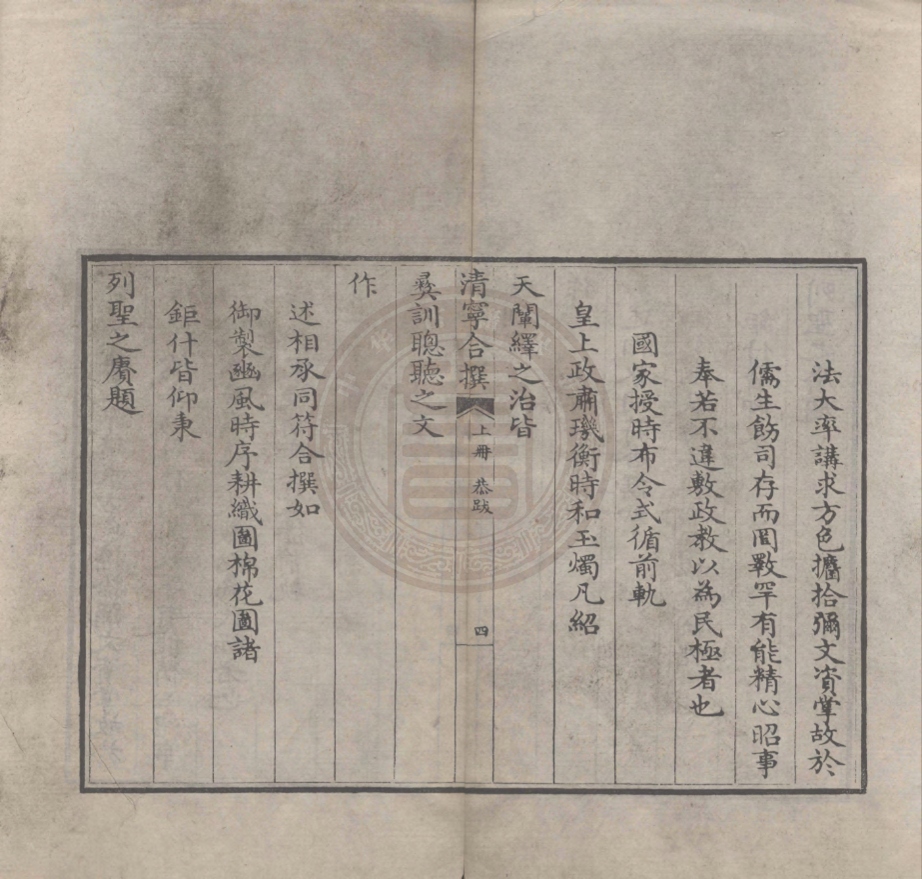 法大率講求方色攟拾彌文資掌故於
儒生飭司存而罔斁罕有能精心昭事
奉若不違敷政教以為民極者也
國家授時布令式循前軌
皇上政肅璣衡時和玉燭凡紹
天闡繹之治皆
清寧合撰 上冊 恭跋 四
彛訓聰聽之文
作
述相承同符合撰如
御製豳風時序耕織圖棉花圖諸
鉅什皆仰秉
列聖之賡題